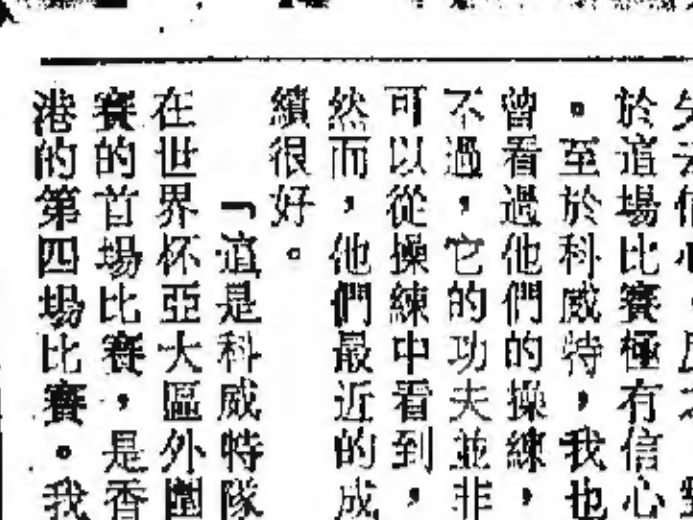 失去信心，反之，對
於這場比賽極有信心
。至於科威特，我也
曾看過他們的操練，
不過，它的功夫並非
可以從操練中看到，
然而，他們最近的成
績很好。
「這是科威特隊
在世界杯亞大區外圍
賽的首場比賽，是香
港的第四場比賽。我